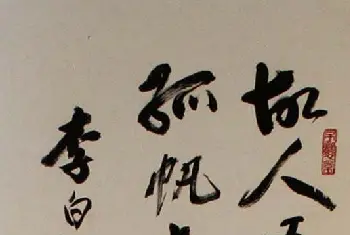 故人
孤帆
李白